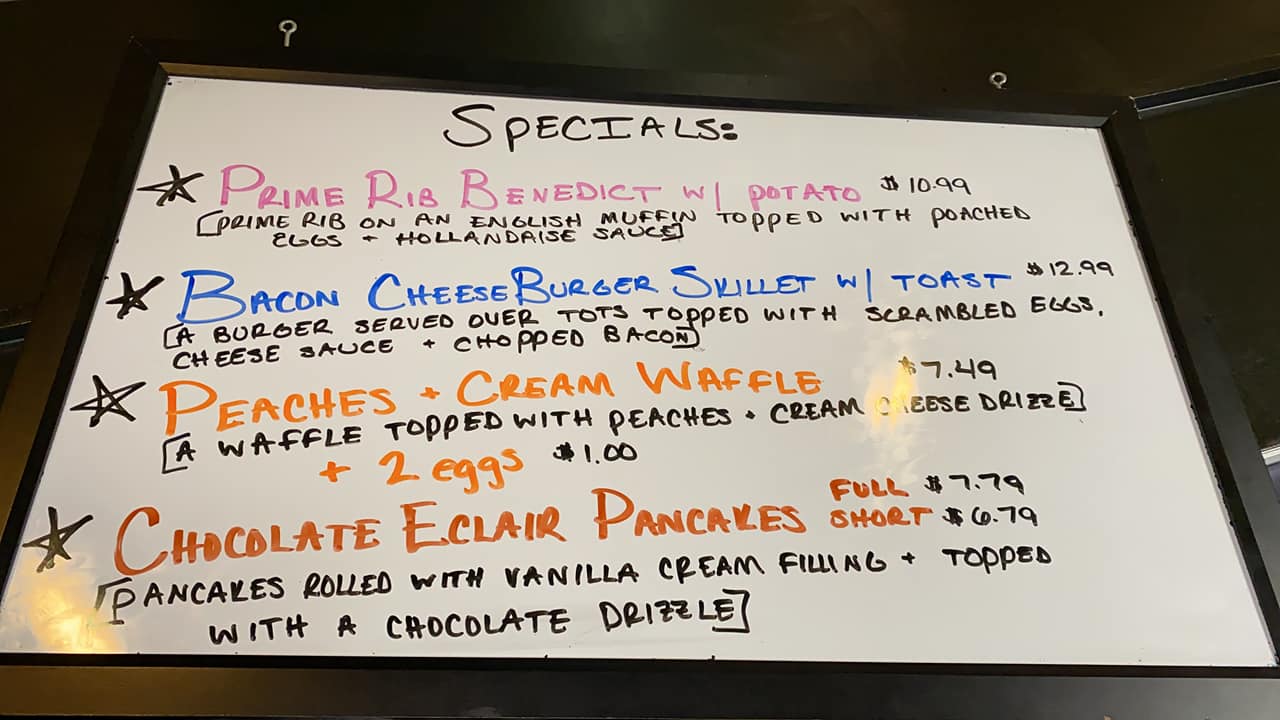 SPECIALS:
PRIME RIB BENEDICT W/ POTATO $10.99
[PRIME RIB ON AN ENGLISH MUFFIN TOPPED WITH POACHED
EGGS + HOLLANDAISE SAUCE]
BACON CHEESEBURGER SKILLET W/ TOAST $12.99
[A BURGER SERVED OVER TOTS TOPPED WITH SCRAMBLED EGGS,
CHEESE SAUCE + CHOPPED BACON]
PEACHES + CREAM WAFFLE $7.49
[A WAFFLE TOPPED WITH PEACHES + CREAM CHEESE DRIZZE]
+ 2 eggs $1.00
FULL $7.79
CHOCOLATE ECLAIR PANCAKES SHORT $6.79
[PANCAKES ROLLED WITH VANILLA CREAM FILLING + TOPPED
WITH A CHOCOLATE DRIZZLE]